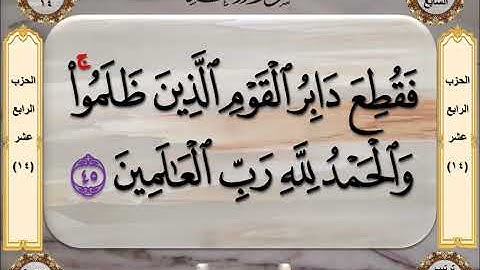 ١٤
السابع
فَقُطِعَ دَابِرُ ٱلْقَوْمِ ٱلَّذِينَ ظَلَمُوا۟ ۚ
وَٱلْحَمْدُ لِلَّهِ رَبِّ ٱلْعَـٰلَمِينَ ٤٥
الحزب
الرابع
عشر
(١٤)
الحزب
الرابع
عشر
(١٤)